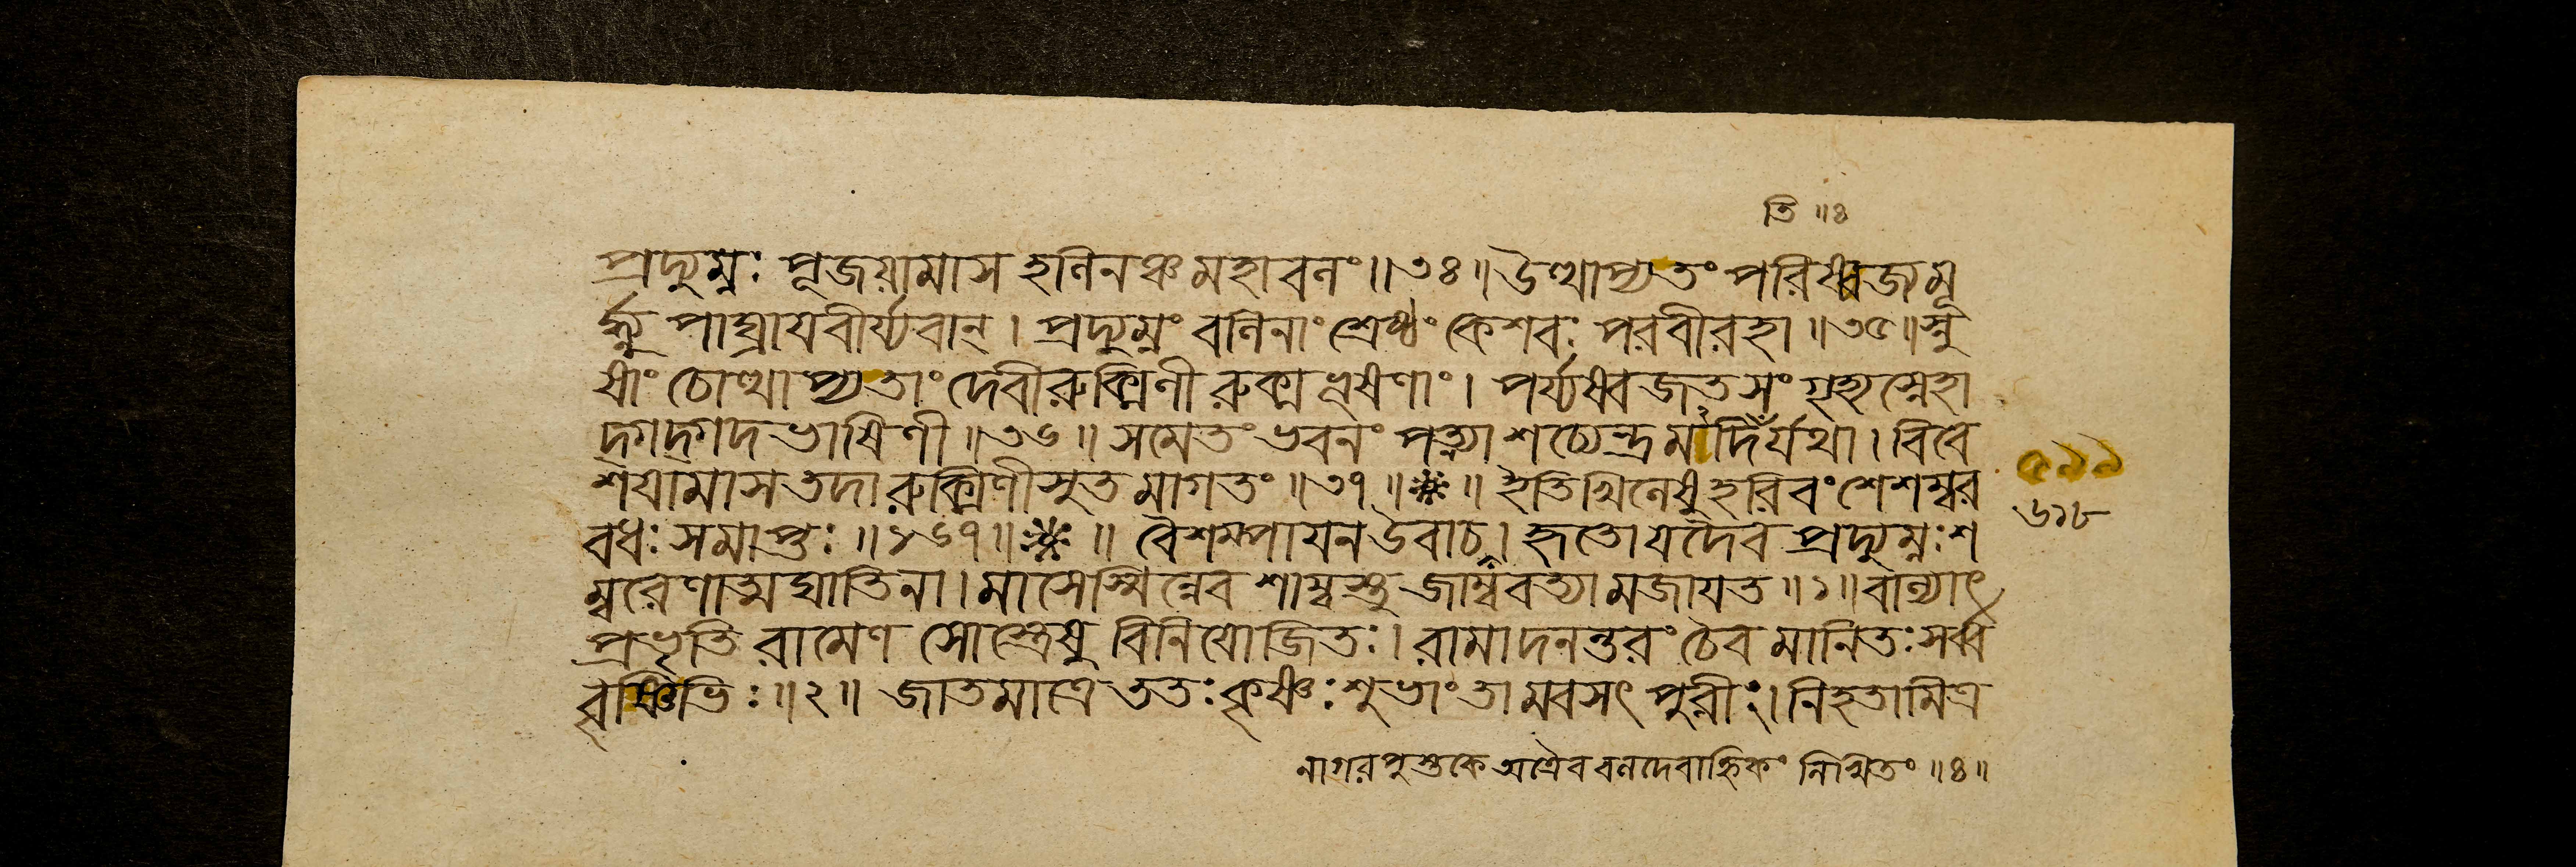 তি ॥৪
প্রদ্যুম্নঃ পূজয়ামাস হলিনঞ্চ মহাবলং ॥৩৪॥ উত্থাপ্য তং পরিষ্বজ্য মূ
র্দ্ধ্ন্যুপাঘ্রায বীর্য্যবান্ । প্রদ্যুম্নং বলিনাং শ্রেষ্ঠং কেশবঃ পরবীরহা ॥৩৫॥ স্নু
ষাং চোত্থাপ্য তাং দেবী রুক্মিণী রুক্মভূষণাং । পর্য্যষ্বজত সংগৃহ্য স্নেহা
দ্গদ্গদভাষিণী ॥৩৬॥ সমেতং ভবনং পত্ন্যা শচ্যেন্দ্রমদিতির্যথা । বিবে
শযামাস তদা রুক্মিণী সুতমাগতং ॥৩৭॥ ❋ ॥ ইতি খিলেষু হরিবংশে শম্বর
বধঃ সমাপ্তঃ ॥১৬৭॥ ❋ ॥ বৈশম্পাযন উবাচ । হৃতো যদৈব প্রদ্যুম্নঃ শ
ম্বরেণাত্মঘাতিনা । মাসেস্মিন্নেব শাম্বস্তু জাম্ববত্যামজাযত ॥১॥ বাল্যাৎ
প্রভৃতি রামেণ সোস্ত্রেষু বিনিযোজিতঃ । রামাদনন্তরং চৈব মানিতঃ সর্ব্ব
বৃষ্ণিভিঃ ॥২॥ জাতমাত্রে ততঃ কৃষ্ণঃ শুভাং তামবসৎ পুরীং । নিহতামিত্র
৫৯৯
৬১৮
নাগরপুস্তকে অত্রৈব বলদেবাহ্নিকং লিখিতং ॥৪॥